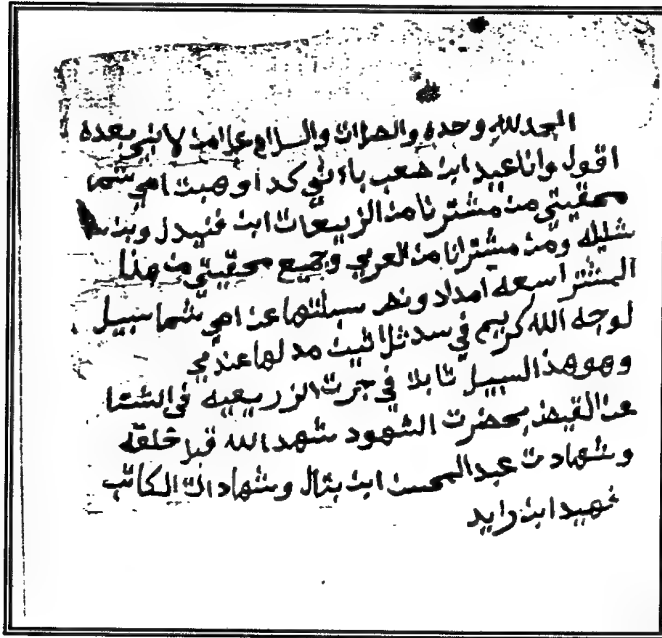 الحمد لله وحده والصلات والسلام علا من لا نبي بعده
اقول وانا عيد ابن شعب باءني كد اوهبت امي شما
محقيتي من مشترنا من الزريعات ابن فنيدل وبنه
شليله ومن مشترانا من العربي وجميع محقيتي من هذا
المشترا سعه امداد ونهر سبلتها عن امي شما سبيل
لوجه الله كريم في سد ثلاثيت مد لها عندي
وهو هذا السبيل ثابلا في جرت الزريعيه في الشتا
عن القيض بحضرت الشهود شهد الله قبل خلقه
وشهادت عبد المحسن ابن بتال وشهادات الكاتب
فهيد ابن زايد